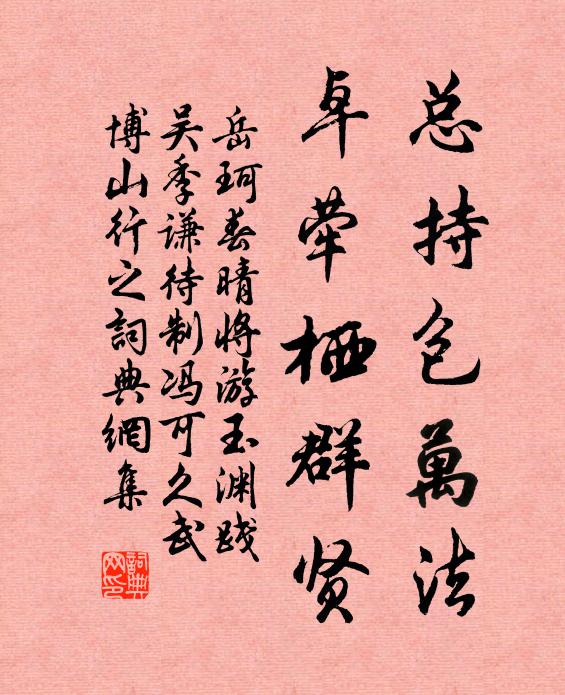 总持包萬法
卓荦栖群贤
岳珂春晴将游玉渊践
吴季谦待制冯可久武
博山行之詞典網集
詞典网印